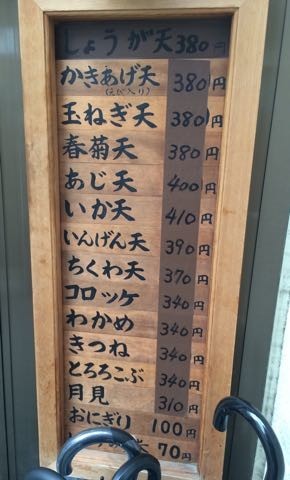 しょうが天 380円
かきあげ天 380円
(えび入り)
玉ねぎ天 380円
春菊天 380円
あじ天 400円
いか天 410円
いんげん天 390円
ちくわ天 370円
コロッケ 340円
わかめ 340円
きつね 340円
とろろこぶ 340円
月見 310円
おにぎり 100円
70円